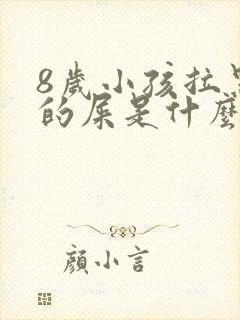 8歲小孩拉
的屎是什麼
顏小言